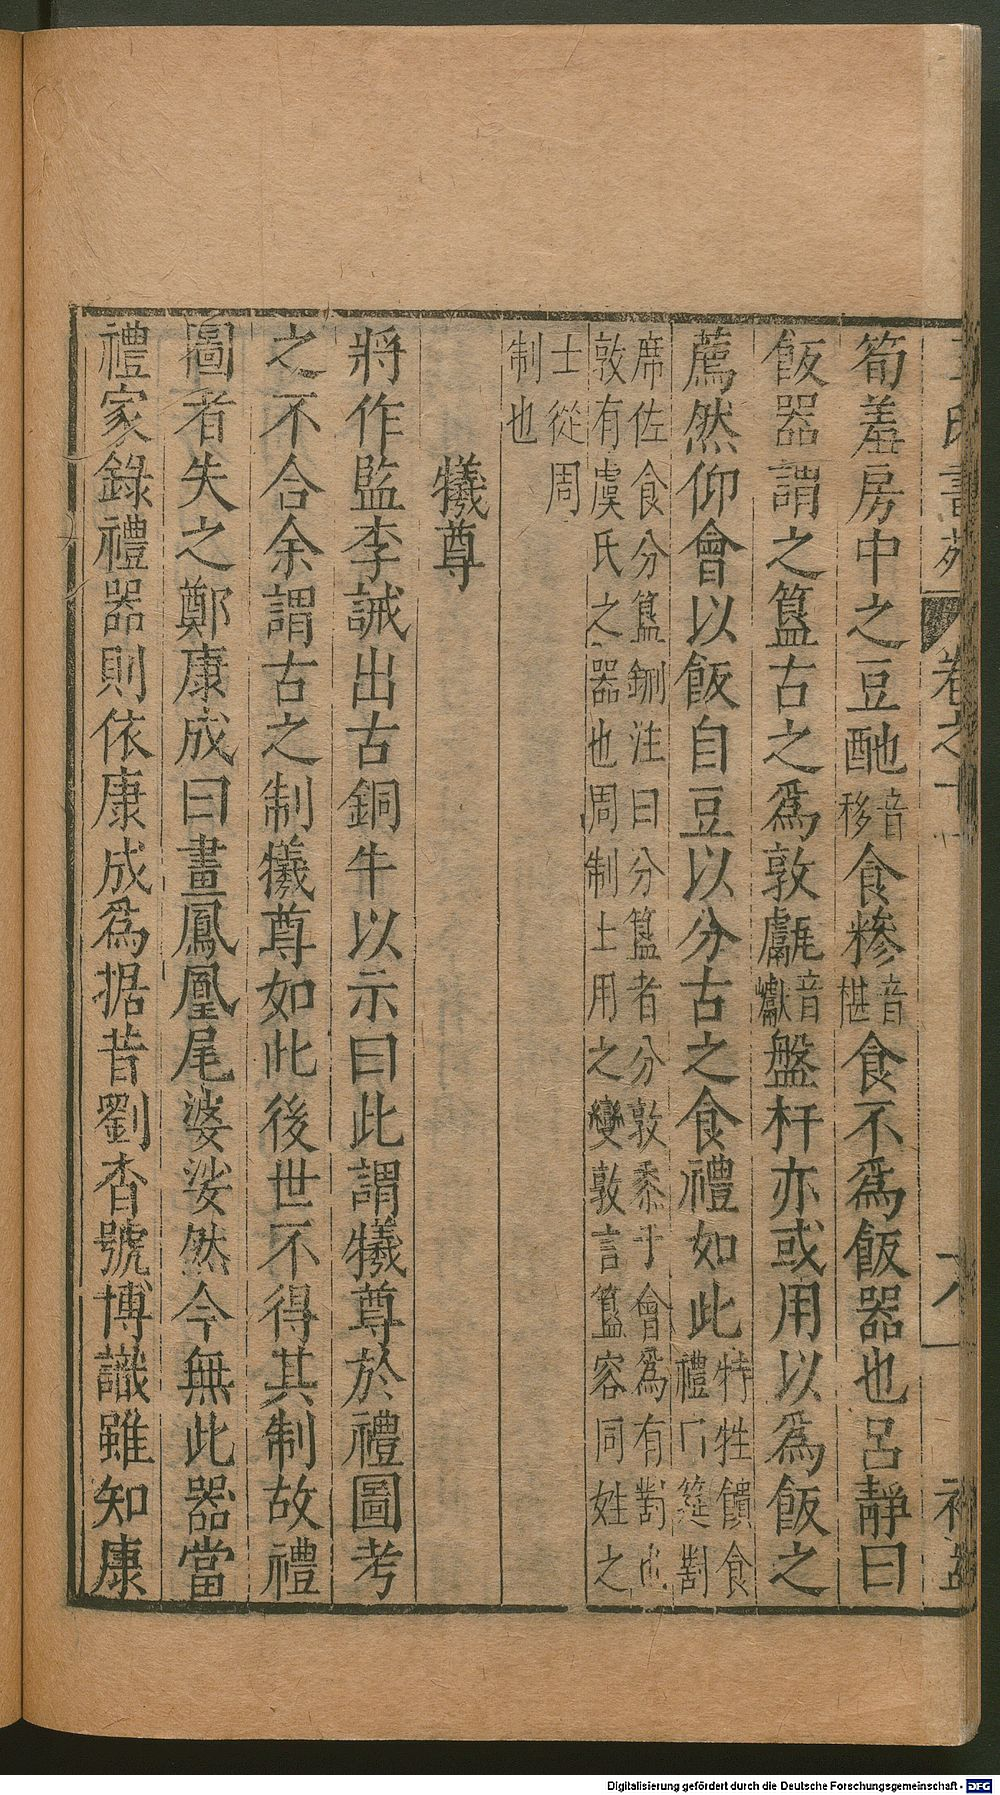 氏書苑 卷之十
筍羞房中之豆酏音移食糝音椹食不爲飯器也呂靜曰
飯器謂之簋古之爲敦甗音巘盤杅亦或用以爲飯之
薦然仰會以飯自豆以分古之食禮如此特牲饋食禮曰筵對
席佐食分簋鉶注曰分簋者分敦黍于會爲有對也
敦有虞氏之器也周制士用之變敦言簋容同姓之
士從周
制也
犧尊
將作監李誡出古銅牛以示曰此謂犧尊於禮圖考
之不合余謂古之制犧尊如此後世不得其制故禮
圖者失之鄭康成曰畫鳳凰尾婆娑然今無此器當
禮家錄禮器則依康成爲据昔劉杳號博識雖知康
Digitalisierung gefördert durch die Deutsche Forschungsgemeinschaft - DFG